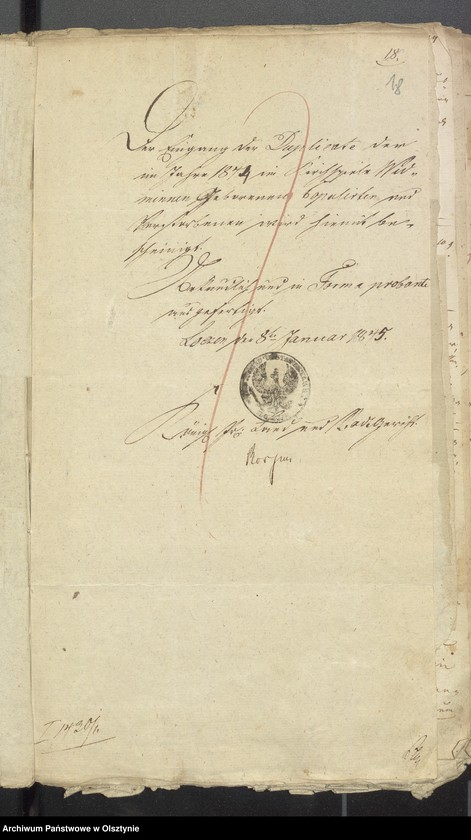 18.
18
Der Eingang der Duplicate der
im Jahre 1874 im Kirchspiele Wid-
minnen Geborenen, Copulirten und
Verstorbenen wird hiemit be-
scheinigt.
Urkundlich und in Forma probante
ausgefertigt.
Loetzen den 8t. Januar 1875.
Königl. Prß. Land und Stadtgericht.
Archiwum Państwowe w Olsztynie